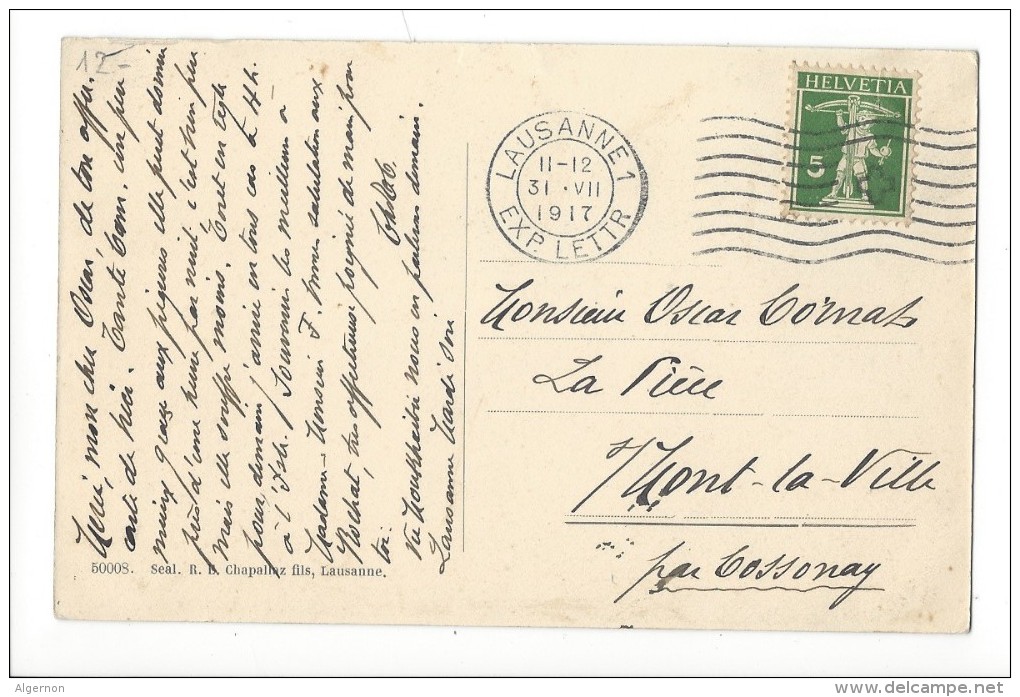 12-
Merci, mon cher Oscar, de ton affec.
carte de hier. Tante Cam. un peu
mieux grâce aux piqures elle peut dormir
près d'une heure par nuit c'est bien peu
mais elle souffre moins. Tout en règle
pour demain j'arrive en tous cas à 4h.
à l'Isle. Souvenirs les meilleurs à
Madame & Monsieur F. mes salutations aux
Rochat, très affectueuse poignée de main pour
toi.
nous en parlerons demain.
Lausanne Mardi soir
50008. Seal. R. E. Chapallaz fils, Lausanne.
LAUSANNE 1
11-12
31 · VII
1917
EXP. LETTR.
HELVETIA
5
Monsieur Oscar Cornaz
La
s/ Mont-la-Ville
par Cossonay
Algernon
www.delcampe.net